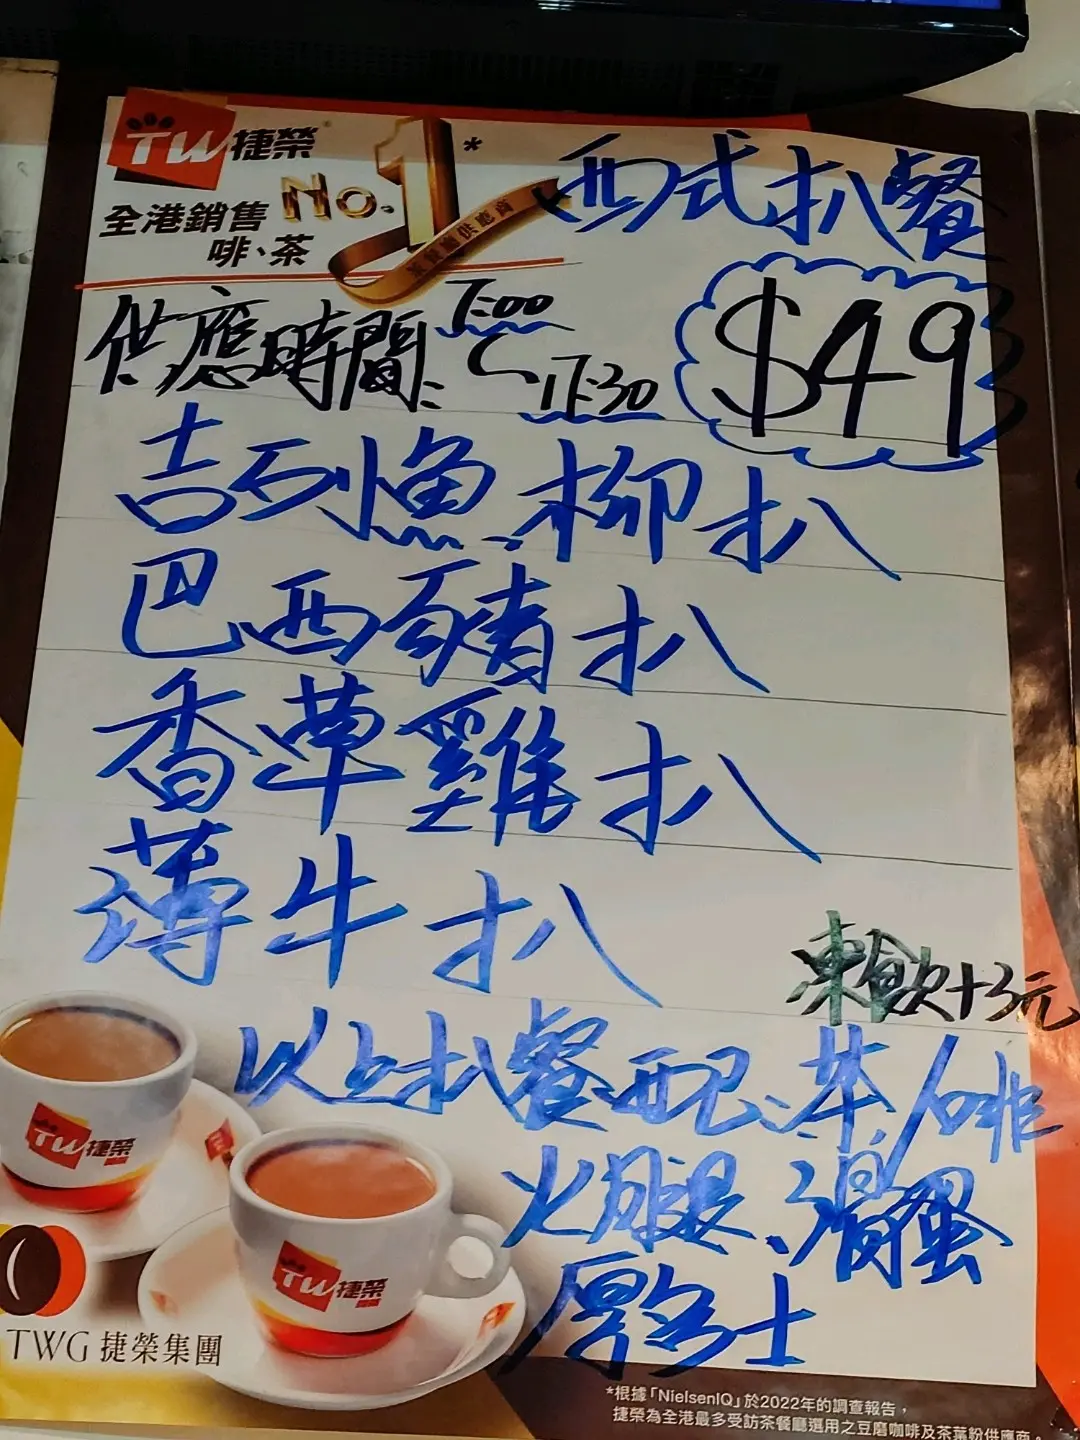 TW捷榮
No.1*
全港銷售
啡、茶
茶餐廳供應商
西式扒餐
$49
供應時間:7:00
17:30
吉列魚柳扒
巴西豬扒
香草雞扒
薄牛扒
凍飲+3元
以上扒餐配:茶/啡
火腿、滑蛋
厚多士
TW捷榮
TW捷榮
TWG 捷榮集團
*根據「NielsenIQ」於2022年的調查報告，
捷榮為全港最多受訪茶餐廳選用之豆磨咖啡及茶葉粉供應商。